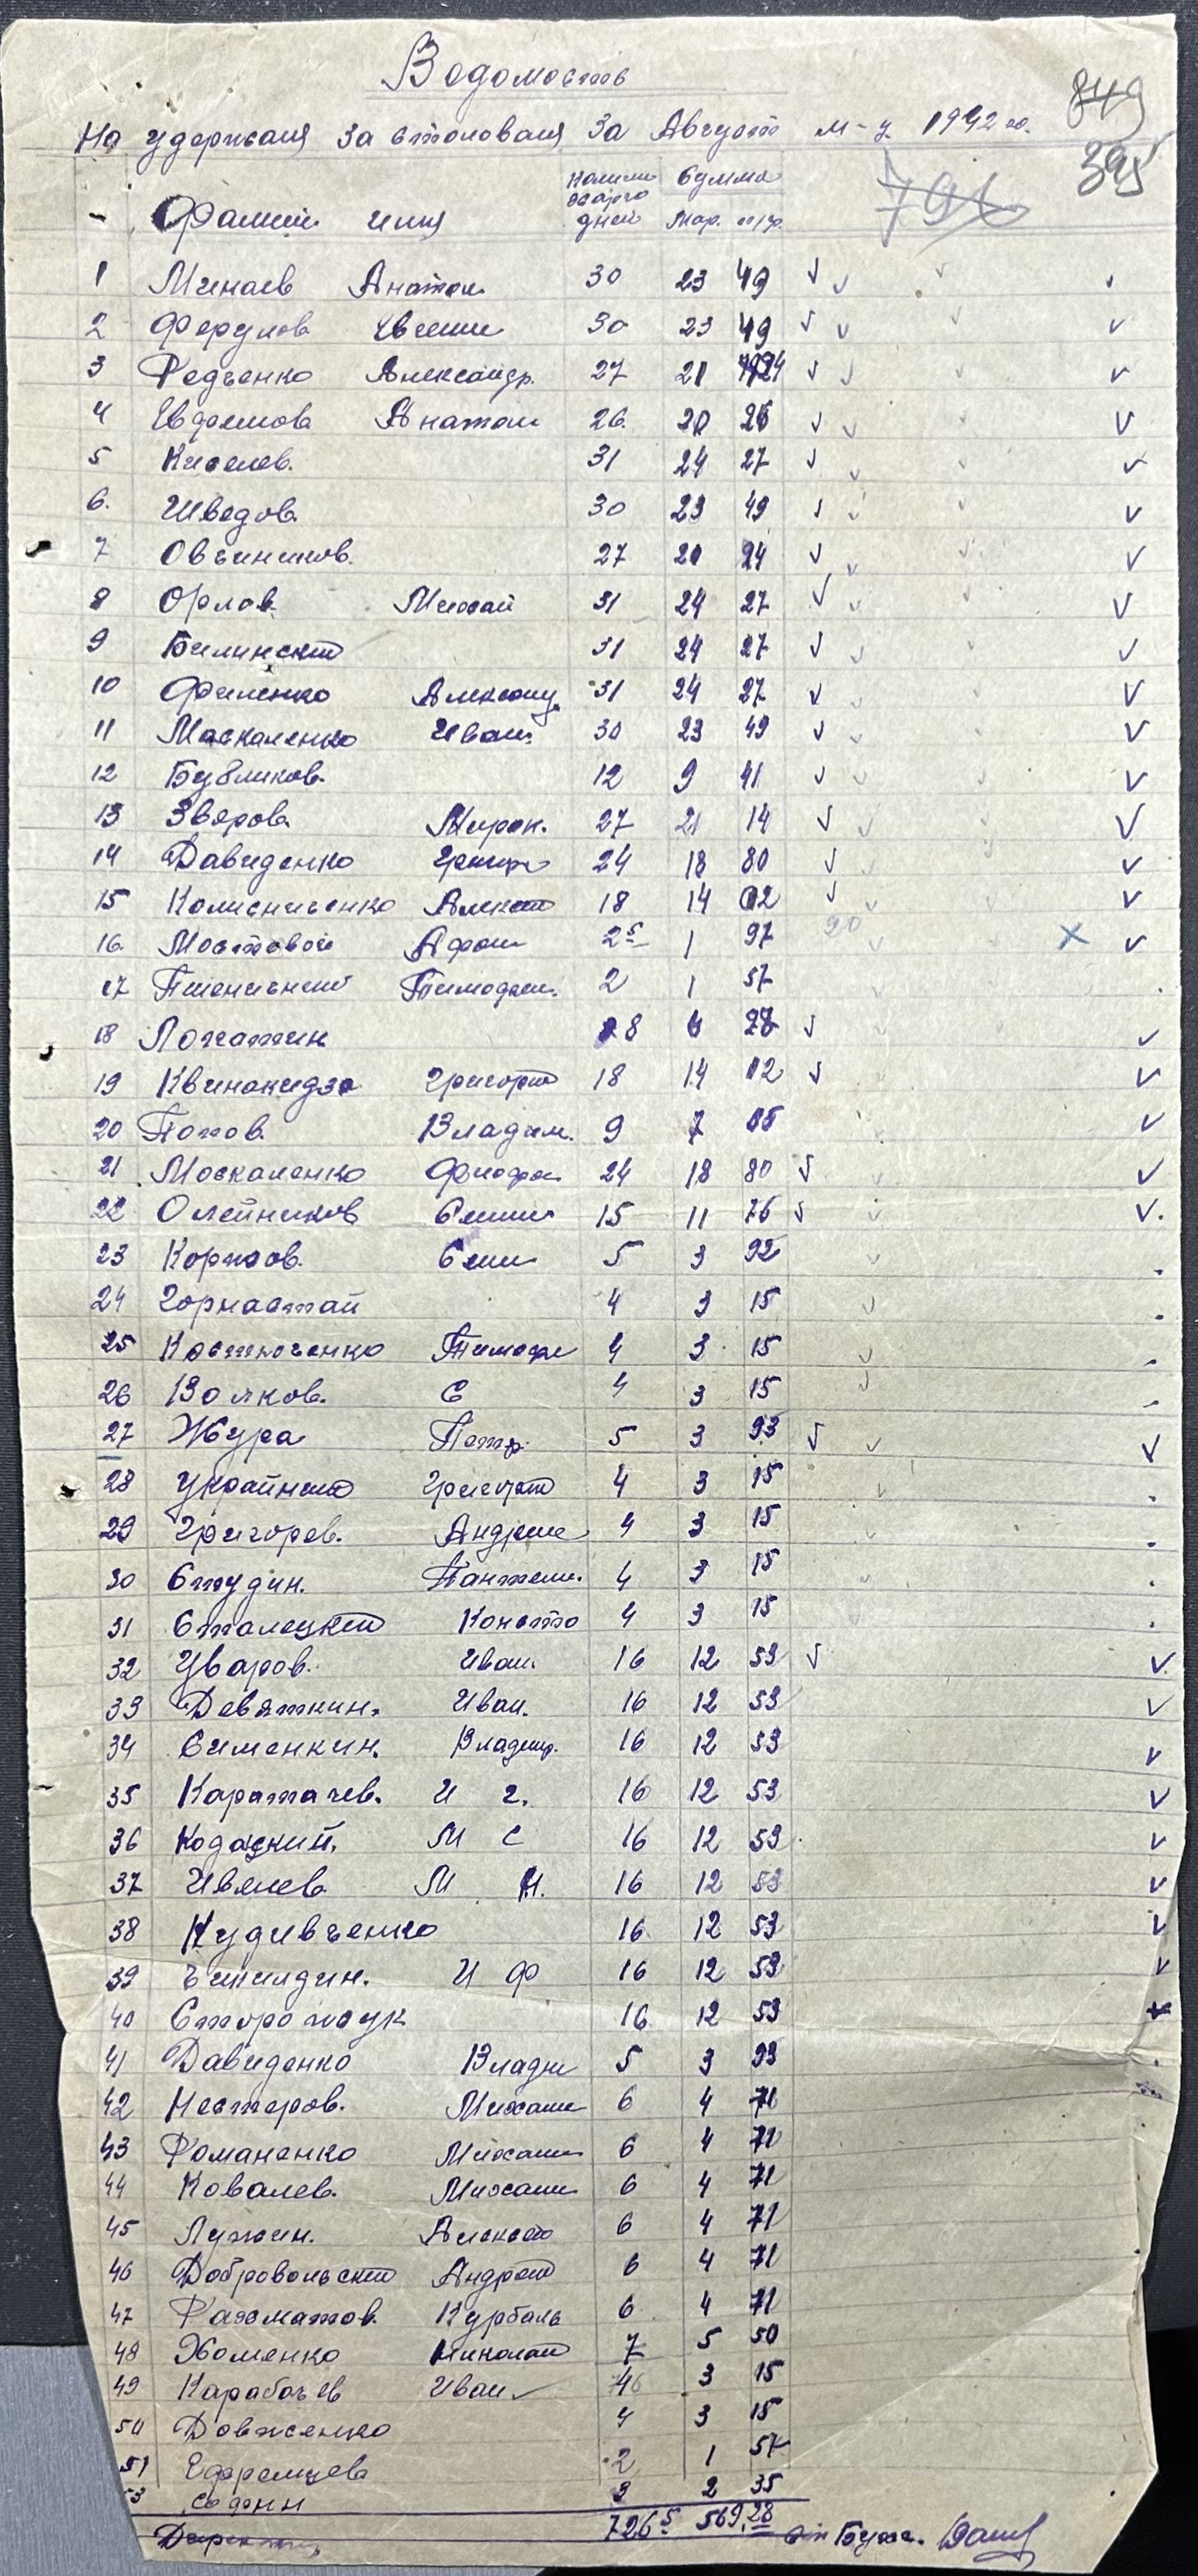 Ведомость
849
На удержания За столования За Август м-ц 1942 го.
395
791
Фамилия имя дней Сумма
Мар. п/ф.
1 Минаев Анатол 30 23 49
2 Ферулов Евгени 30 23 49
3 Редченко Александр. 27 21
4 Евфемова Анатол 26 20
5 Киселев. 31 24 27
6. Шведов. 30 23 49
7 Овчиников. 27 24
8 Орлов. Михаи 31 24 27
9 Билинский 31 24 27
10 Филенко Александ 31 24 27
11 Маскаленко Иван. 30 23 49
12 Бубликов. 12 9 41
13 Зверова Мирон. 27 21 14
14 Давиденко Григори 24 18 80
15 Колисниченко Алексей 18 14 02
16 Мостовой Афон 2 5 1 97 20
17 Пшеничный Тимофеи. 2 1 57
18 Лопатин 8 6
19 Квинакидзе Григорий 18 14 12
20 Попов. Владим. 9 7 05
21 Москаленко 24 18 80
22 Олейников Семин 15 11 76
23 Карпов. Семи 5 3 92
24 Горностай 4 3 15
25 Костюченко Тимофе 4 3 15
26 Волков. С 4 3 15
27 Жура Петр. 5 3 93
28 Украинский Григорий 4 3 15
29 Григорев. Андрие 4 3 15
30 Студин. Пантели. 4 3 15
31 Сталецкий Консто 4 3 15
32 Уваров. Иван. 16 12 53
33 Девяткин. Иван. 16 12 53
34 Сименкин. Владимр. 16 12 53
35 Карпачев. И г. 16 12 53
36 Кодацкий. М С 16 12 53
37 Ивлиев М И. 16 12 53
38 Кудивченко 16 12 53
39 И Ф 16 12 53
40 Сторощук 16 12 53
41 Давиденко Влади 5 3 93
42 Нестеров. Михаил 6 4 71
43 Романенко Михаил 6 4 71
44 Ковалев. Михаил 6 4 71
45 Лужин. Алексей 6 4 71
46 Добровольский Андрей 6 4 71
47 Рахматов. Курбаль 6 4 71
48 Хоменко Николай 7 5 50
49 Карабачев Иван 3 15
50 Довженко 4 3 15
51 Ефремцев 2 1 57
53 3 2 35
726 5 569.28
Бухг.